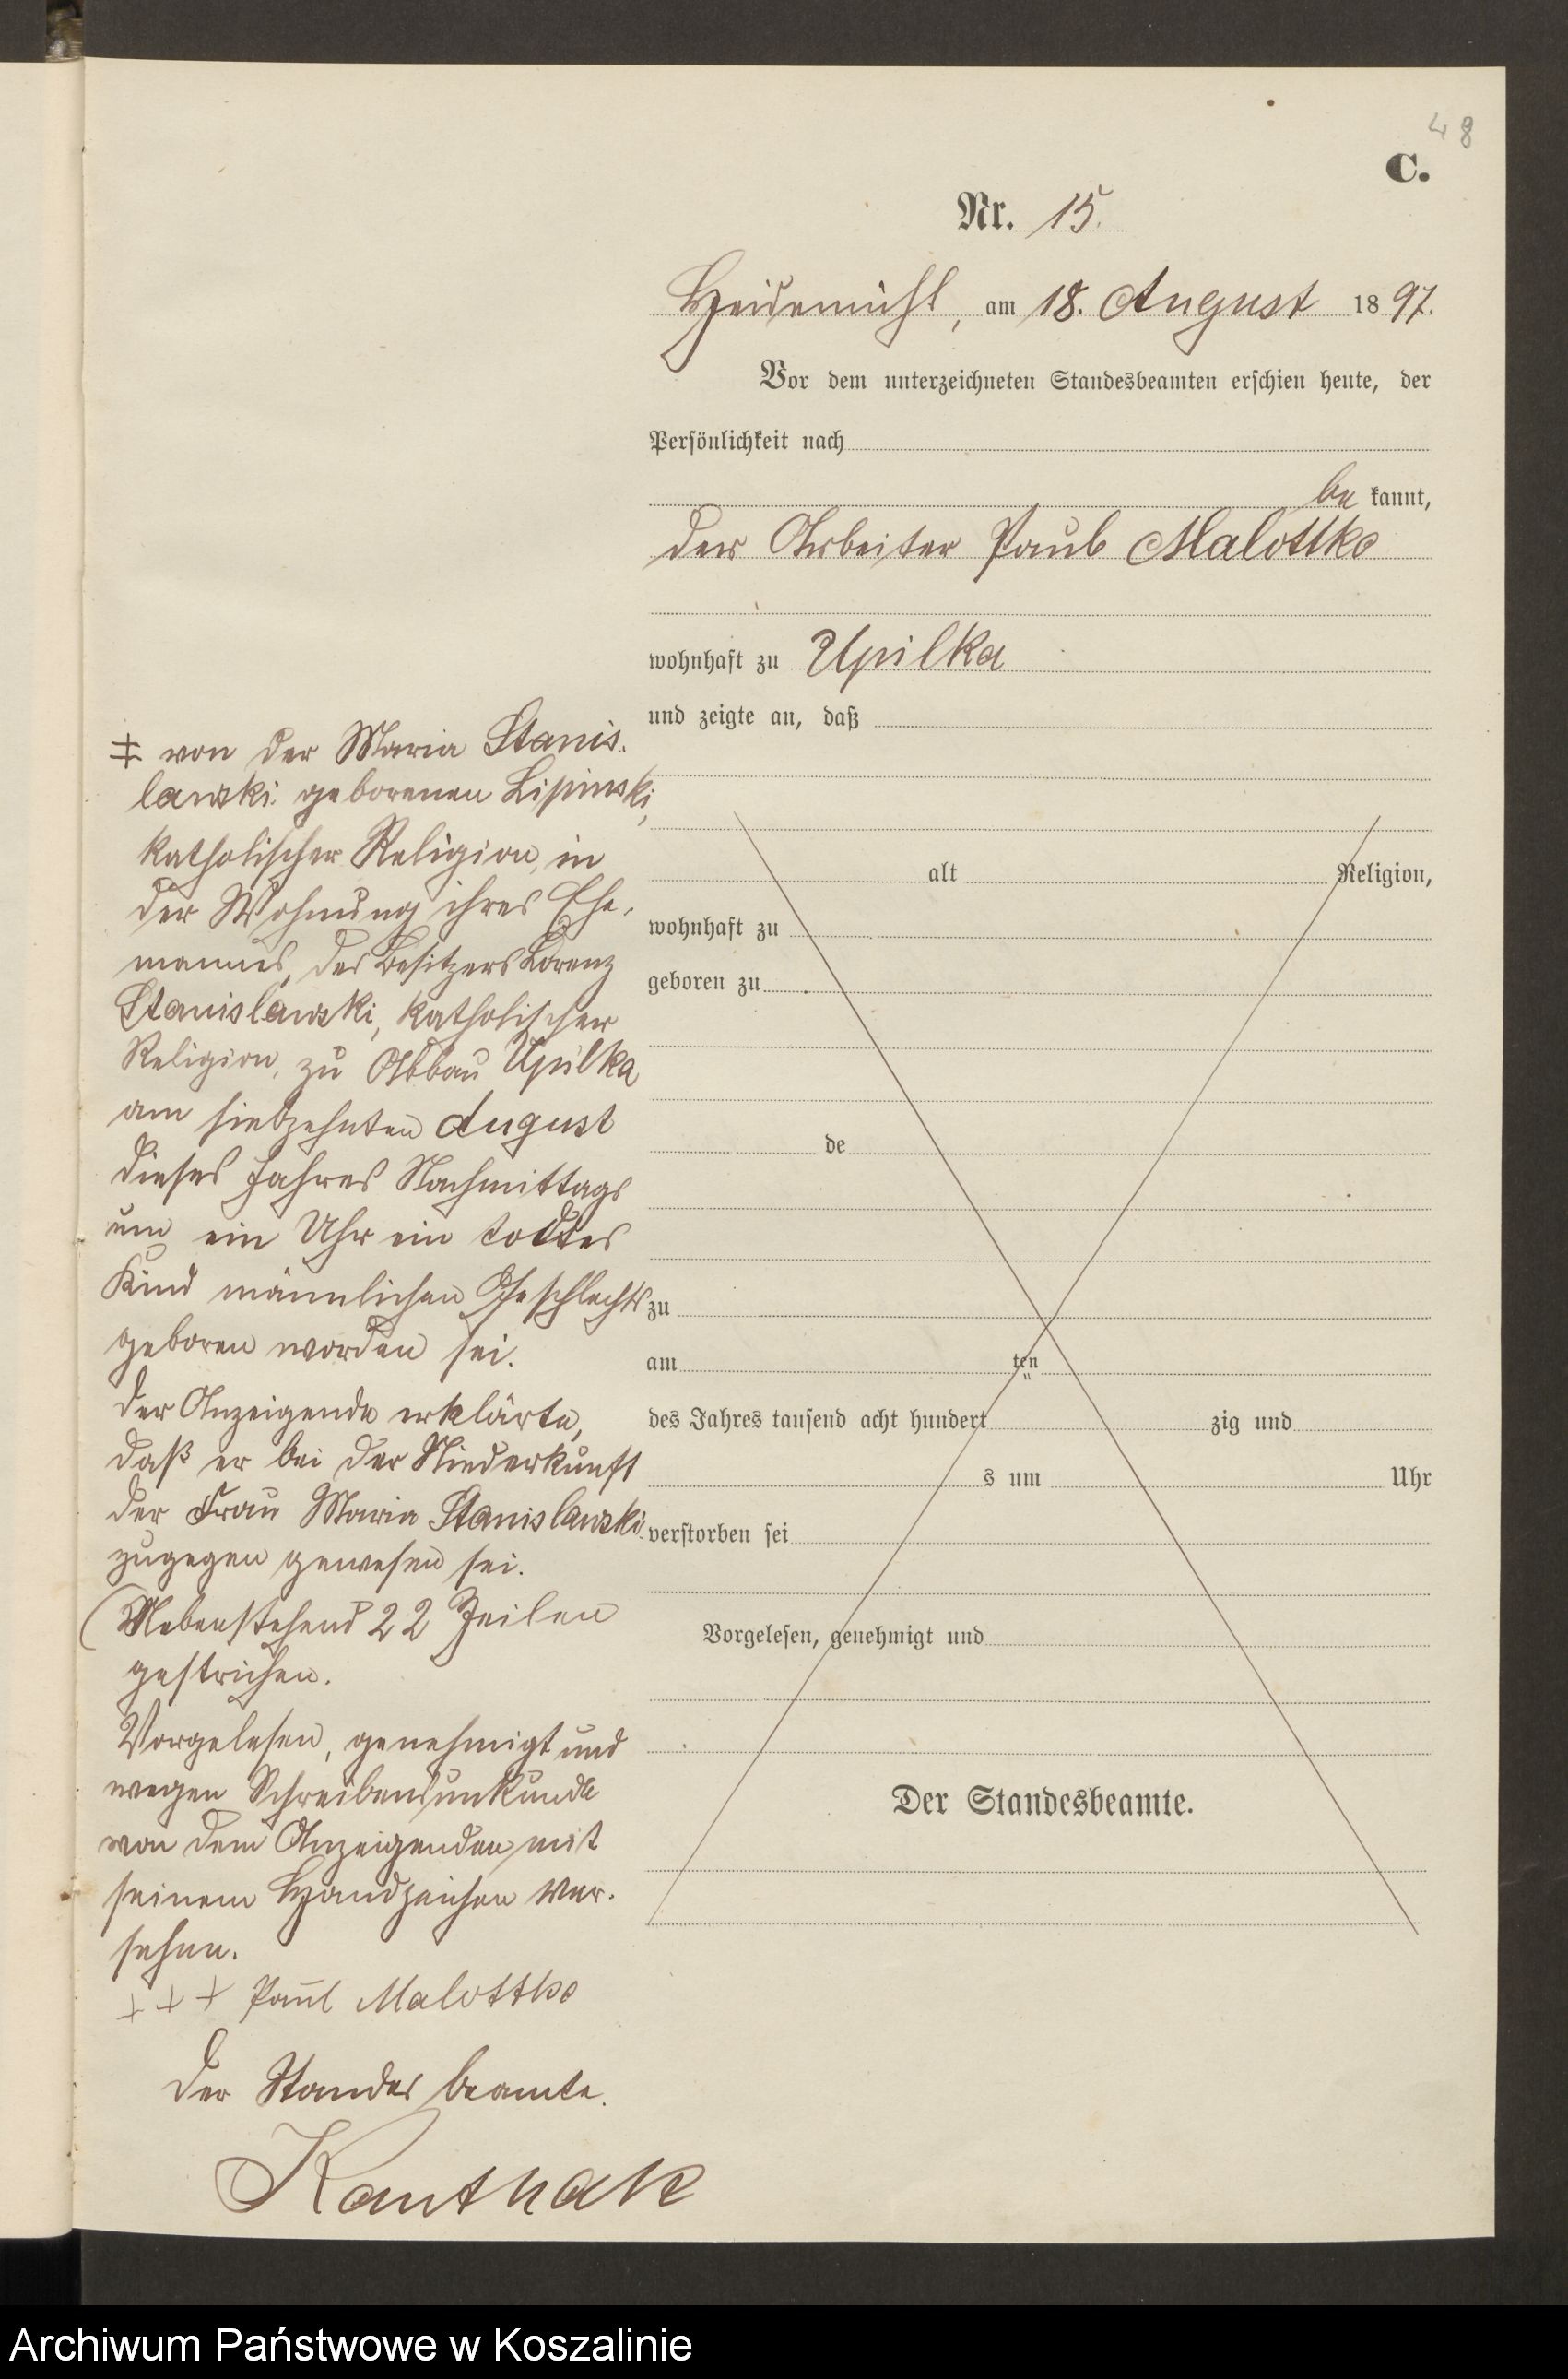 48
C.
Nr. 15.
Heidemühl, am 18. August 1897.
Vor dem unterzeichneten Standesbeamten erschien heute, der
Persönlichkeit nach
be kannt,
der Arbeiter Paul Malottke
wohnhaft zu Upilka
und zeigte an, daß
alt Religion,
wohnhaft zu
geboren zu
de
zu
am ten
des Jahres tausend acht hundert zig und
s um Uhr
verstorben sei
Vorgelesen, genehmigt und
Der Standesbeamte.
‡ von der Maria Stanis-
lawski geborenen Lipinski,
katholischer Religion, in
der Wohnung ihres Ehe-
mannes, des Besitzers Lorenz
Stanislawski, katholischer
Religion, zu Abbau Upilka
am siebzehnten August
dieses Jahres Nachmittags
um ein Uhr ein todtes
Kind männlichen Geschlechts
geboren worden sei.
Der Anzeigende erklärte,
daß er bei der Niederkunft
der Frau Maria Stanislawski
zugegen gewesen sei.
(Nebenstehend 22 Zeilen
gestrichen.
Vorgelesen, genehmigt und
wegen Schreibensunkunde
von dem Anzeigenden mit
seinem Handzeichen ver-
sehen.
+ + + Paul Malottke
Der Standesbeamte.
Kanthak
Archiwum Państwowe w Koszalinie